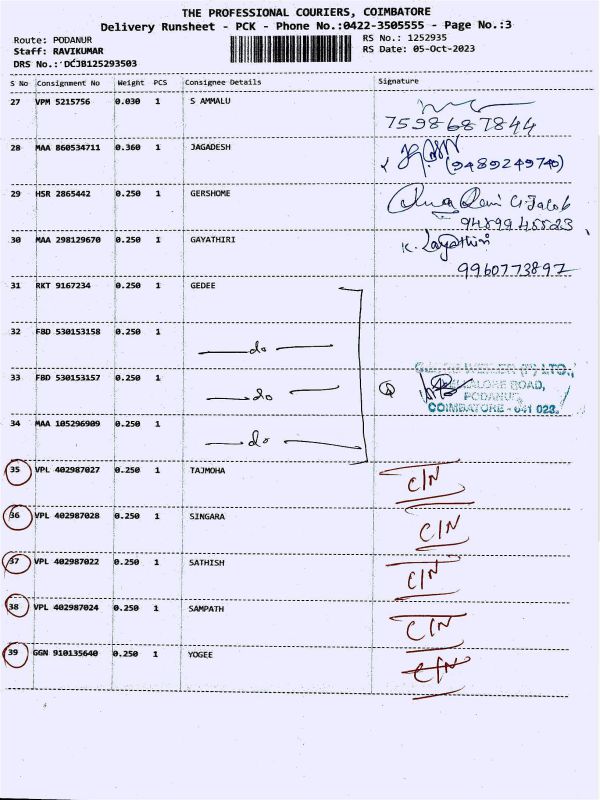 THE PROFESSIONAL COURIERS, COIMBATORE
Delivery Runsheet - PCK - Phone No.:0422-3505555 - Page No.:3
Route: PODANUR RS No.: 1252935
Staff: RAVIKUMAR RS Date: 05-Oct-2023
DRS No.: DCJB125293503
S No Consignment No Weight PCS Consignee Details Signature
27 VPM 5215756 0.030 1 S AMMALU
7598687844
28 MAA 860534711 0.360 1 JAGADESH
(9489249740)
29 HSR 2865442 0.250 1 GERSHOME
G. Jacob
9489945823
30 MAA 298129670 0.250 1 GAYATHIRI K. Gayathiri
9960773897
31 RKT 9167234 0.250 1 GEDEE
32 FBD 530153158 0.250 1
do
33 FBD 530153157 0.250 1 WEILER (P) LTO.,
do ROAD,
PODANUR,
COIMBATORE - 641 023.
34 MAA 105296909 0.250 1
do
35 VPL 402987027 0.250 1 TAJMOHA C/N
36 VPL 402987028 0.250 1 SINGARA C/N
37 VPL 402987022 0.250 1 SATHISH C/N
38 VPL 402987024 0.250 1 SAMPATH C/N
39 GGN 910135640 0.250 1 YOGEE C/N